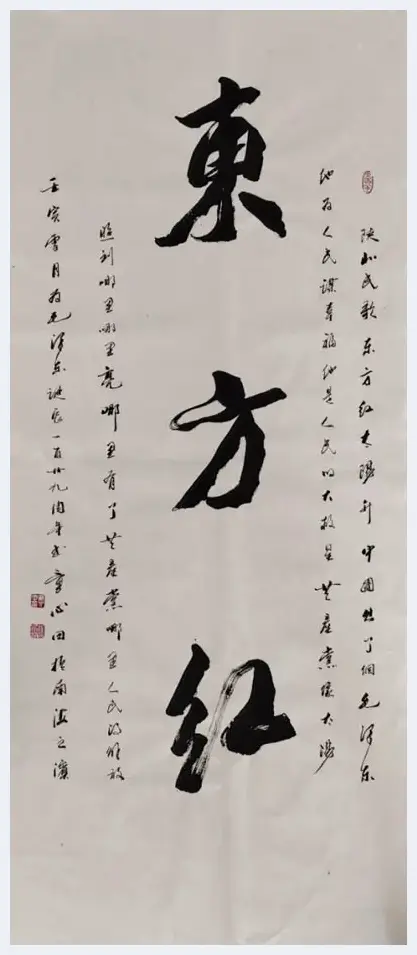 陕北民歌东方红太阳升中国出了個毛泽东
他为人民谋幸福他是人民的大救星共産党像太阳
東方红
照到哪里哪里亮哪里有了共産党哪里人民得解放
壬寅雪月为毛泽东诞辰一百廿九周年书章心田於南海之濱